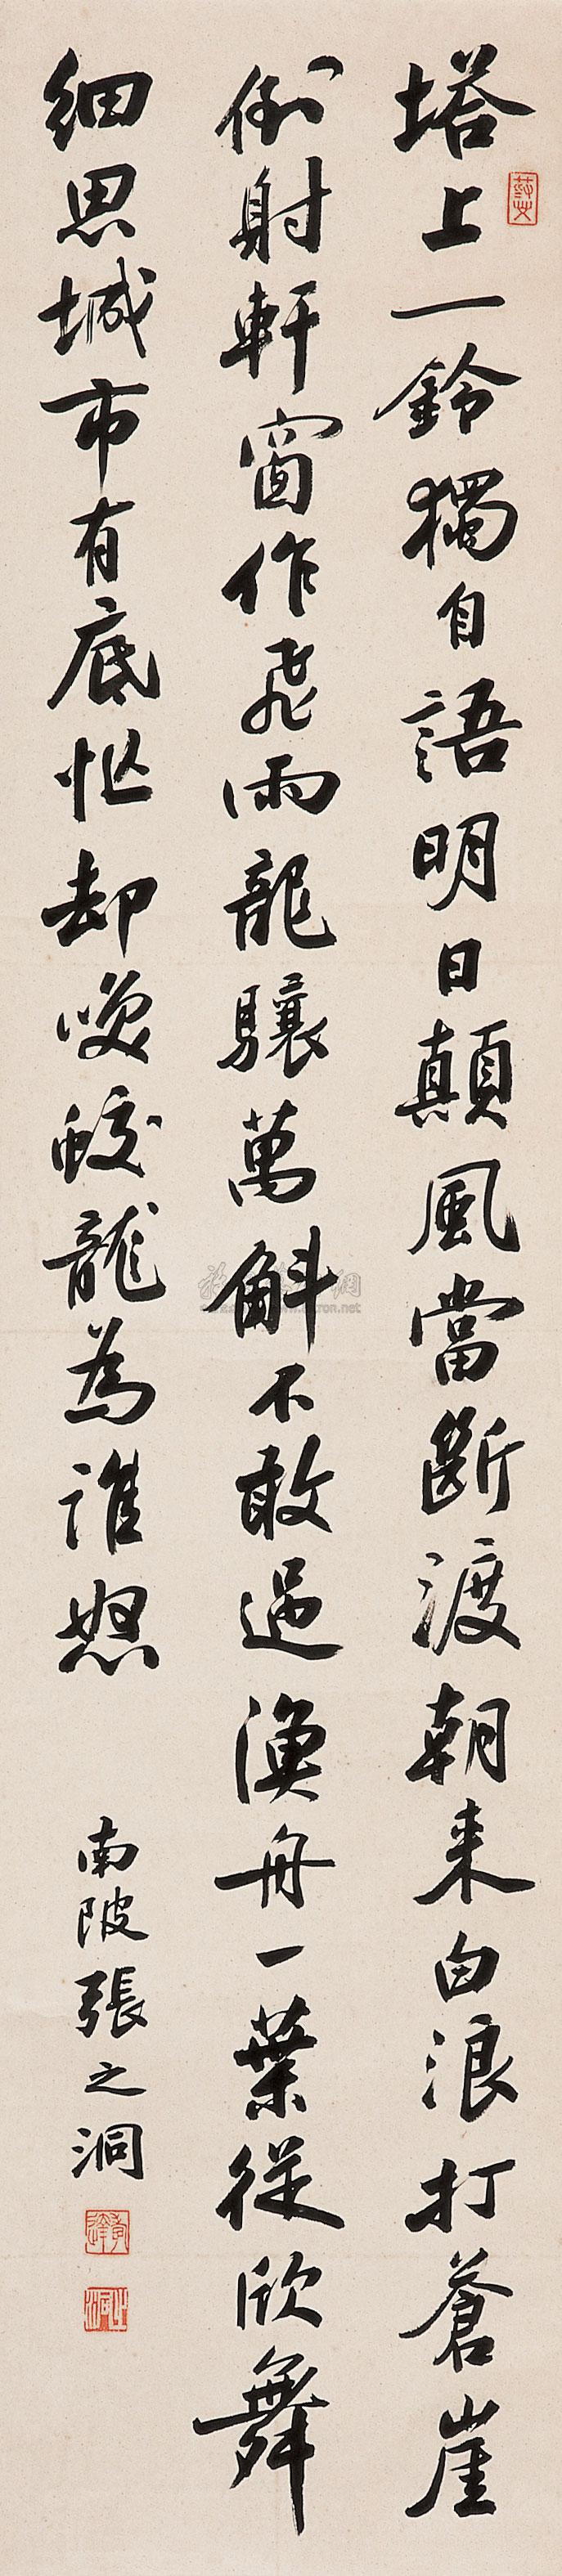 塔上一鈴獨自語明日顛風當斷渡朝来白浪打蒼崖
倒射軒窗作飛雨龍驤萬斛不敢過漁舟一葉從欣舞
細思城市有底忙却咲蛟龍為誰怒
南陂張之洞
之洞